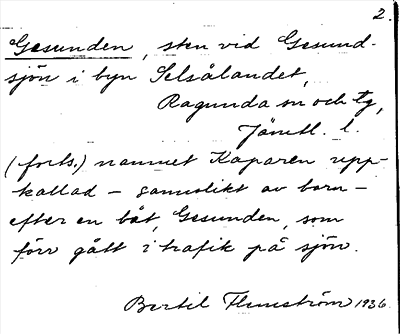 2.
Gesunden, sten vid Gesund-
sjön i byn Selsålandet,
Ragunda sn och tg,
Jämtl. l.
(forts.) namnet Kaparen upp-
kallad – sannolikt av barn –
efter en båt, Gesunden, som
förr gått i trafik på sjön.
Bertil Flemström 1936